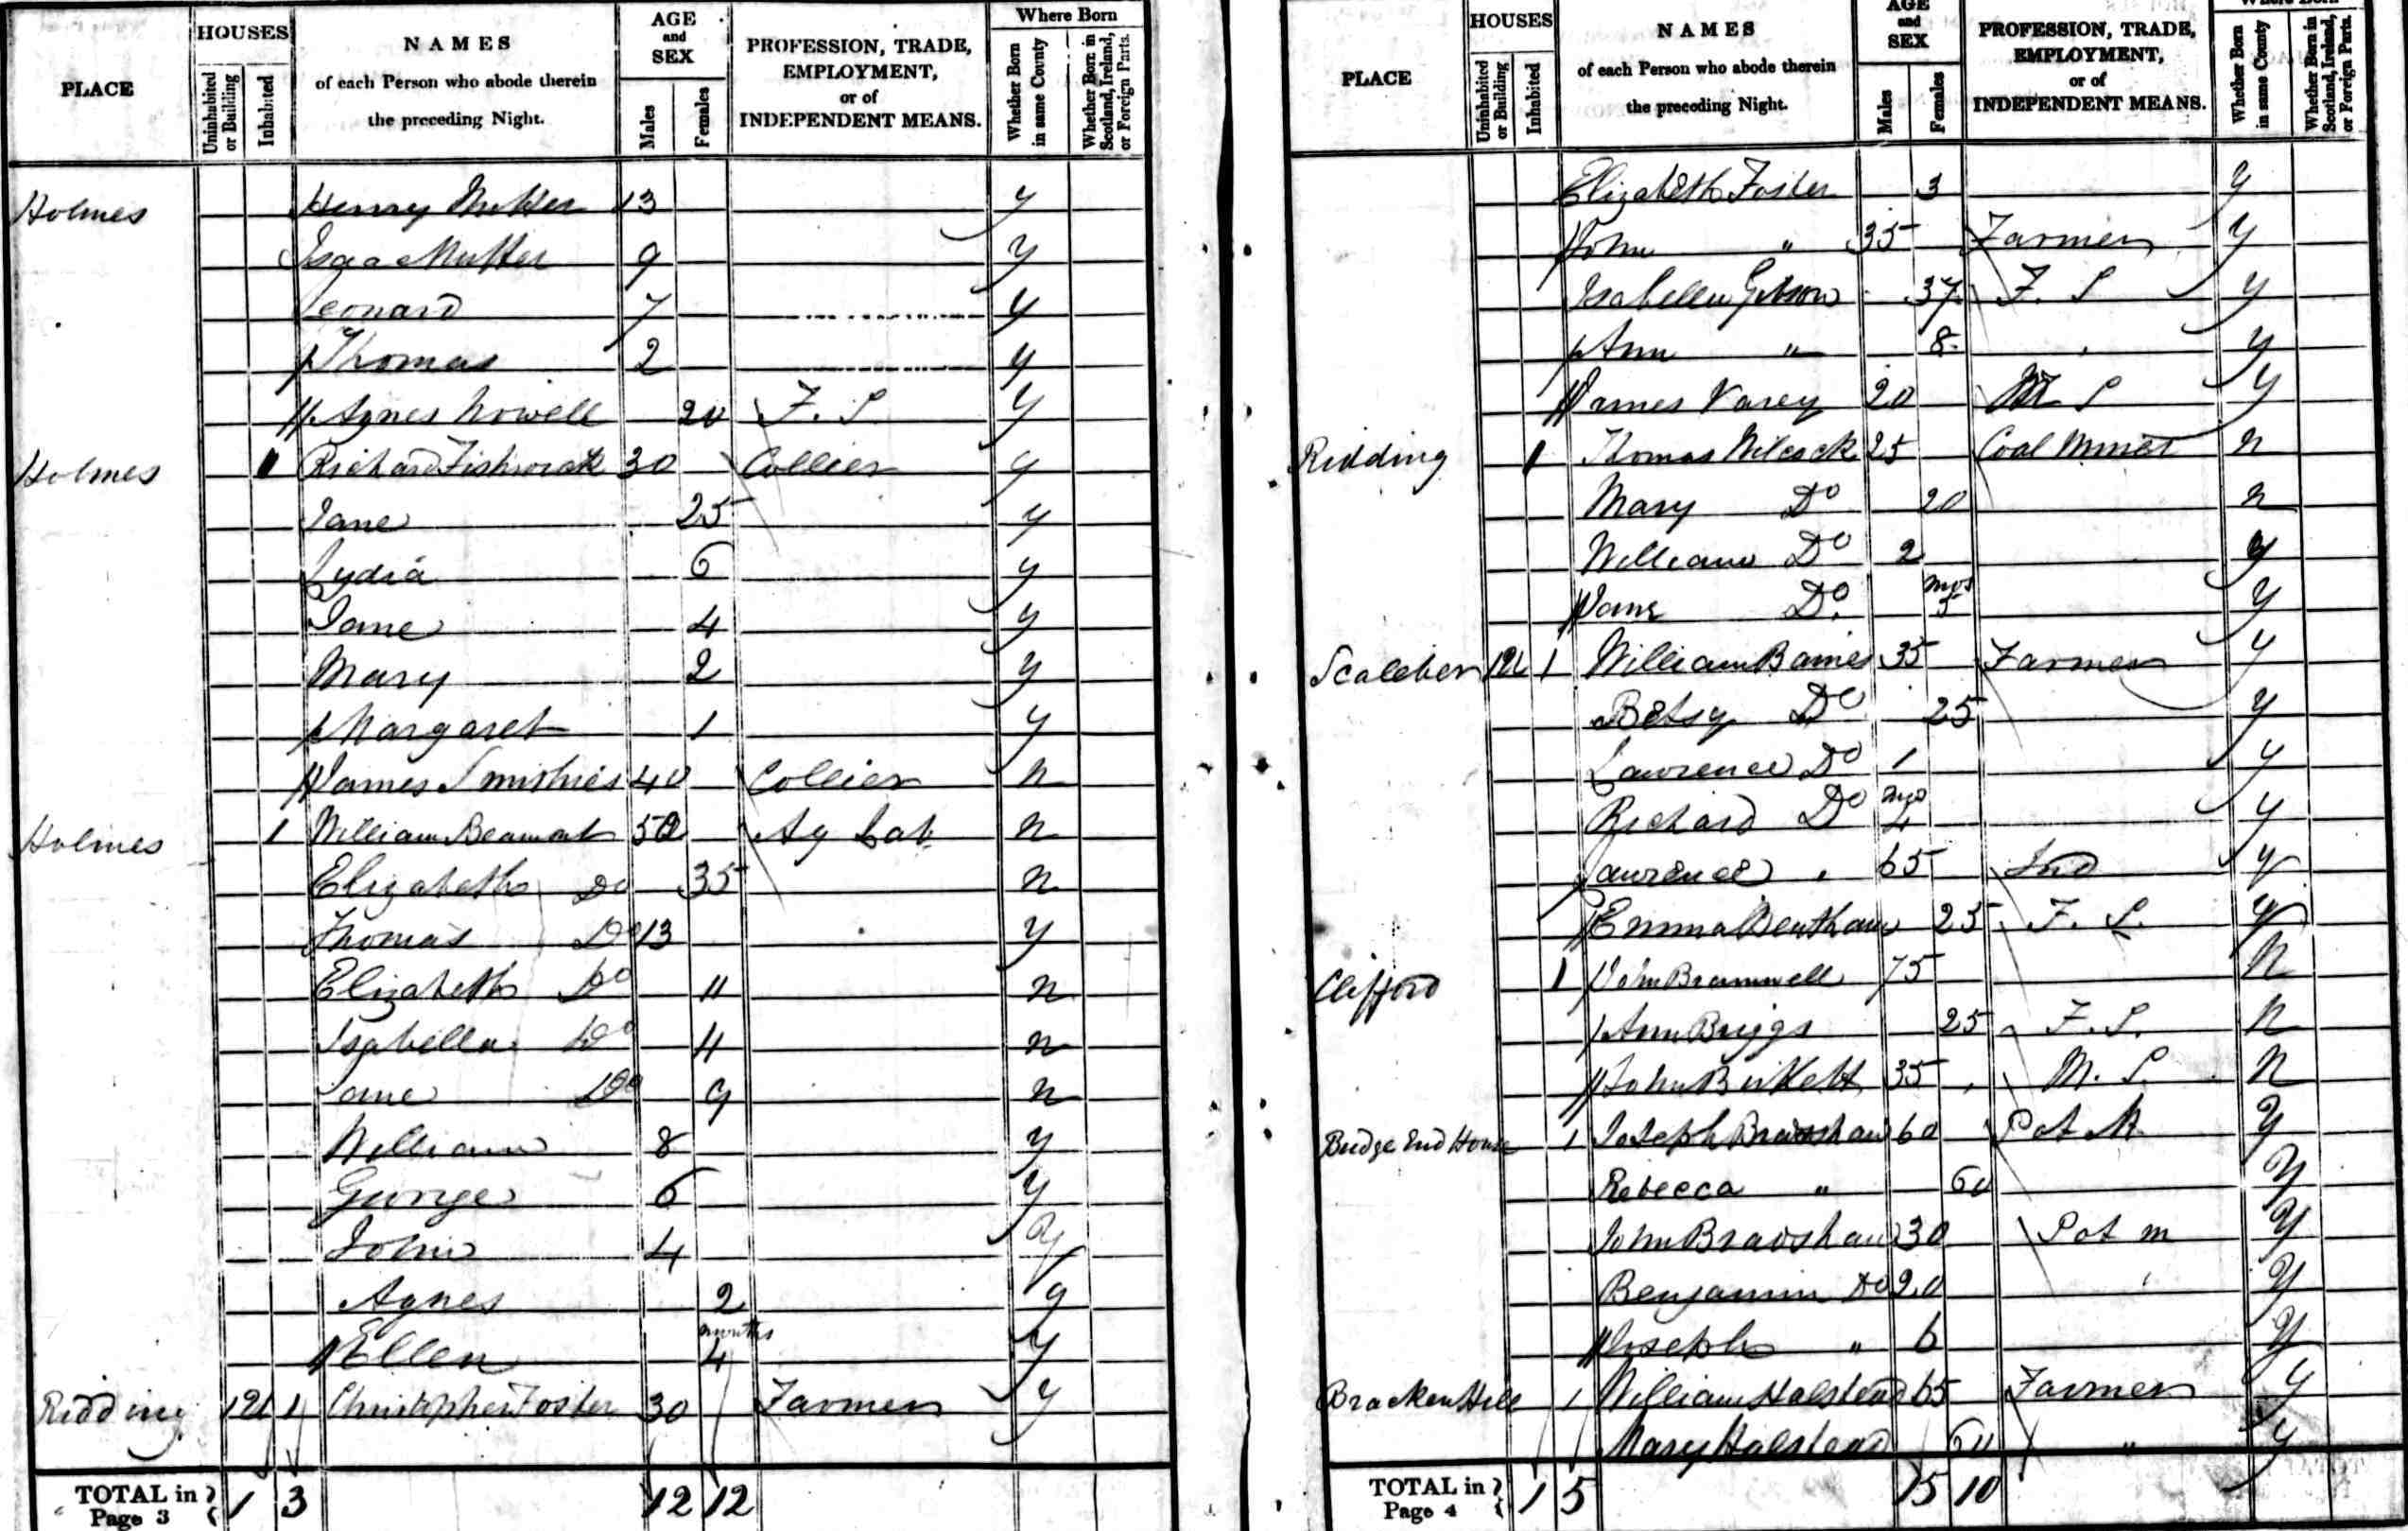 PLACE
HOUSES
Uninhabited or Building
Inhabited
NAMES
of each Person who abode therein
the preceding Night.
AGE and SEX
Males
Females
PROFESSION, TRADE,
EMPLOYMENT,
or of
INDEPENDENT MEANS.
Where Born
Whether Born in same County
Whether Born in Scotland, Ireland, or Foreign Parts.
Holmes Henry 13 y
Isaac 9 y
Leonard 7 y
Thomas 2 y
Agnes Nowell 20 F. S. y
Holmes 1 Richard Fishwick 30 Collier y
Jane 25 y
Lydia 6 y
Jane 4 y
Mary 2 y
Margaret 1 y
James Smithies 40 Collier n
Holmes 1 William Beamont 50 Ag Lab n
Elizabeth Do 35 n
Thomas Do 13 y
Elizabeth Do 11 n
Isabella Do 11 n
Jane Do 9 n
William 8 y
George 6 y
John 4 y
Agnes 2 y
Ellen 4 months y
Ridding 1 Christopher Foster 30 Farmer y
TOTAL in Page 3 1 3 12 12
PLACE
HOUSES
Uninhabited or Building
Inhabited
NAMES
of each Person who abode therein
the preceding Night.
AGE and SEX
Males
Females
PROFESSION, TRADE,
EMPLOYMENT,
or of
INDEPENDENT MEANS.
Where Born
Whether Born in same County
Whether Born in Scotland, Ireland, or Foreign Parts.
Elizabeth Foster 3 y
John " 35 Farmer y
Isabella Gibson 37 F. S y
Ann " 8 y
James Varey 20 M S y
Ridding 1 Thomas Wilcock 25 Coal Miner n
Mary Do 20 n
William Do 2 y
Jane Do. mos 5 y
Scaleber 1 William Baines 35 Farmer y
Betsy Do 25 y
Lawrence Do 1 y
Richard Do mos 4 y
Lawrence 65 Ind y
Emma Bentham 25 F. S. y
Clifford 1 John Bramwell 75 n
Ann Briggs 25 F. S. n
John Birkett 35 M. S. n
Bridge End House 1 Joseph Bradshaw 60 Pot M y
Rebecca " 60 y
John Bradshaw 30 Pot m y
Benjamin Do 20 y
Joseph " 6 y
Bracken Hill 1 William Halstead 65 Farmer y
Mary Halstead 60 " y
TOTAL in Page 4 1 5 15 10